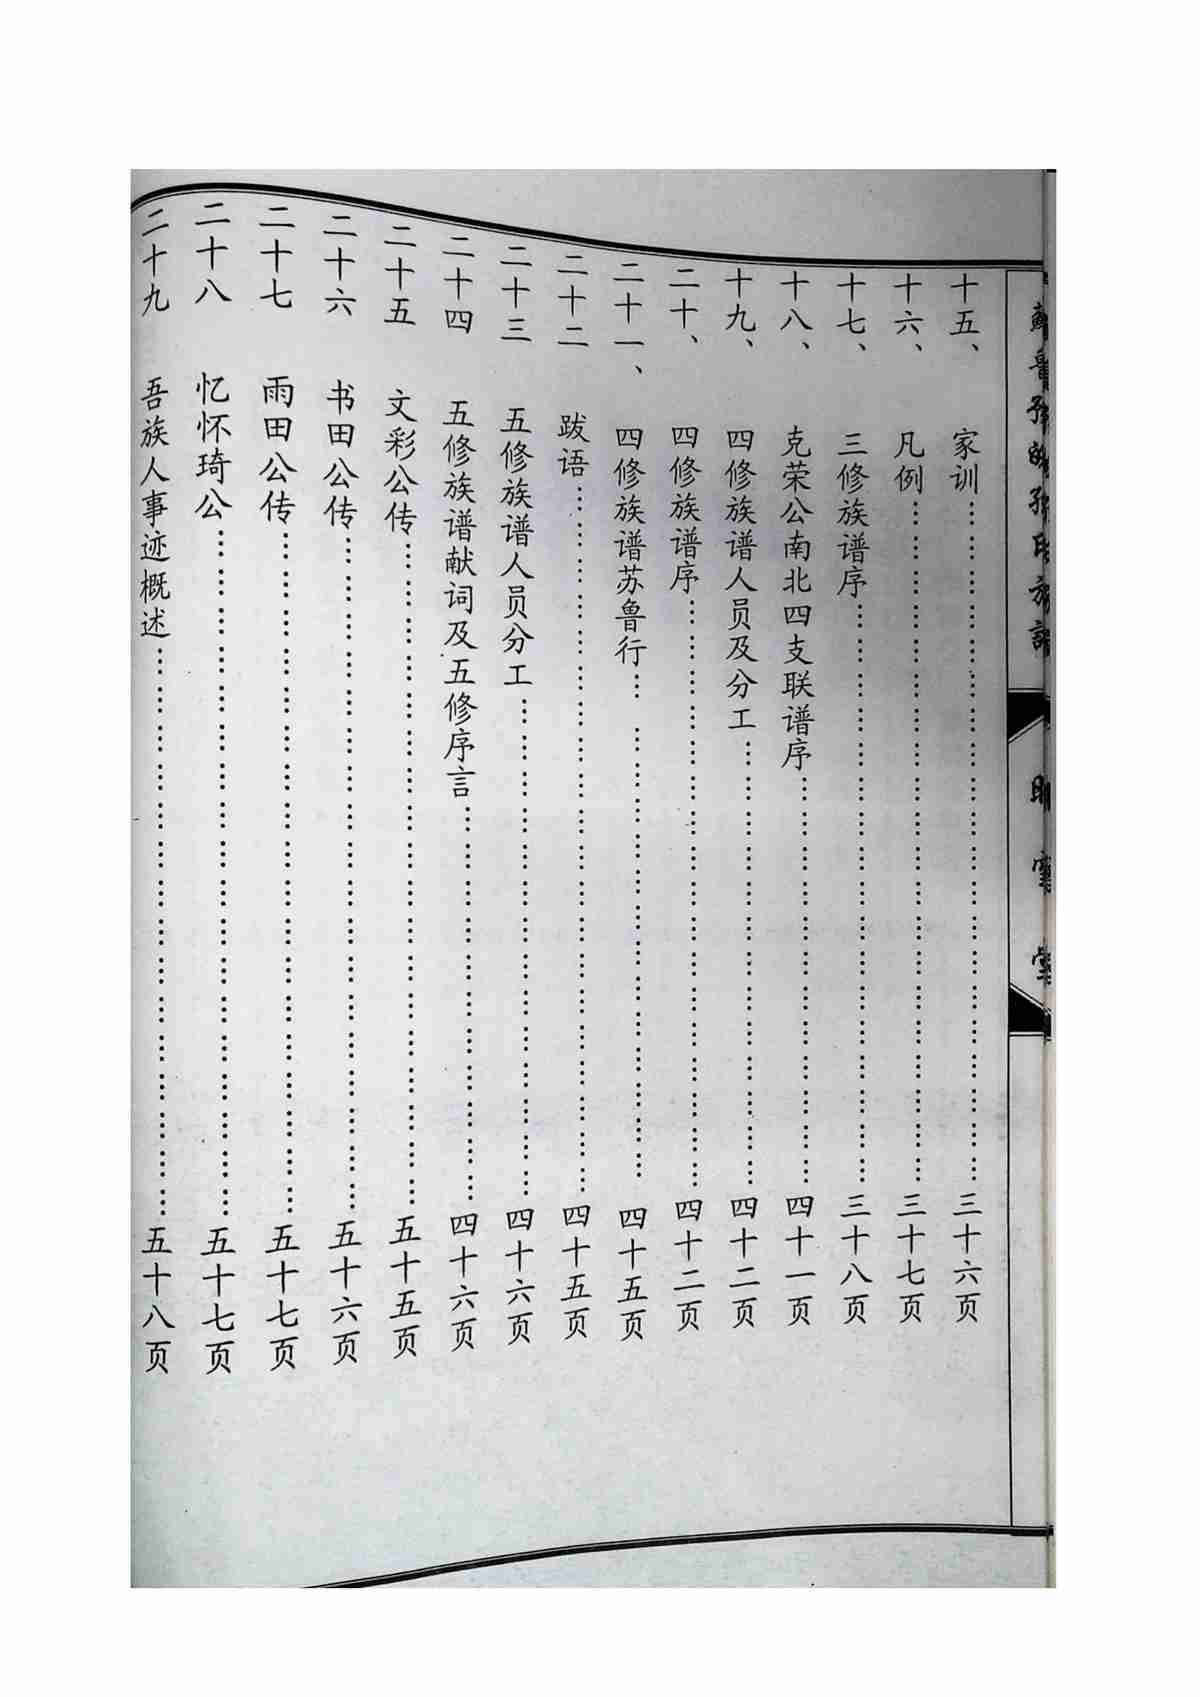 十五、家训……三十六页
十六、凡例……三十七页
十七、三修族谱序……三十八页
十八、克荣公南北四支联谱序……四十一页
十九、四修族谱人员及分工……四十二页
二十、四修族谱序……四十二页
二十一、四修族谱苏鲁行……四十五页
二十二 跋语……四十五页
二十三 五修族谱人员分工……四十六页
二十四 五修族谱献词及五修序言……四十六页
二十五 文彩公传……五十五页
二十六 书田公传……五十六页
二十七 雨田公传……五十七页
二十八 忆怀琦公……五十七页
二十九 吾族人事迹概述……五十八页